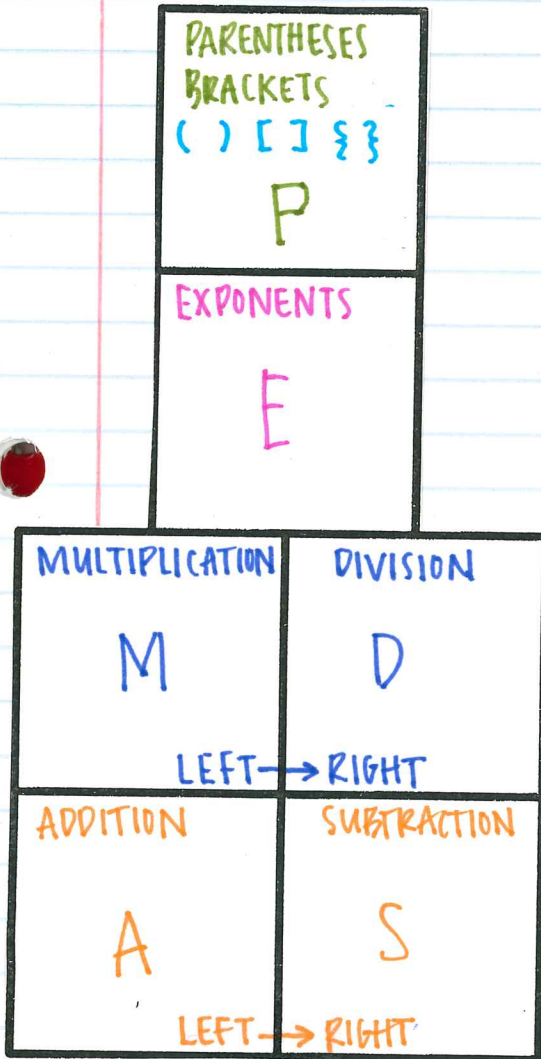 PARENTHESES
BRACKETS
( ) [ ] { }
P
EXPONENTS
E
MULTIPLICATION
M
DIVISION
D
LEFT → RIGHT
ADDITION
A
SUBTRACTION
S
LEFT → RIGHT